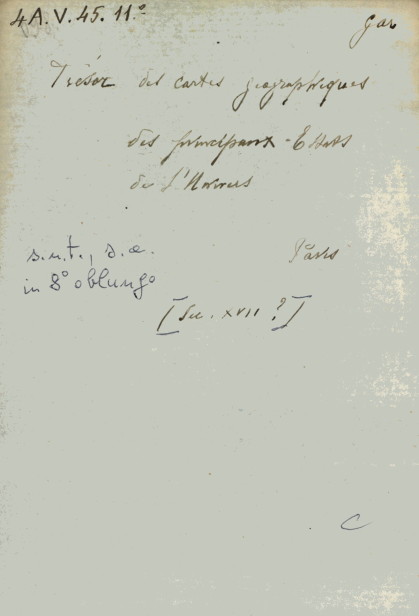 4 A. V. 45. 11.º
Gar
Trésor des cartes geographiques
des principaux Estats
de l'Univers
s.n.t., s.a.
in 8º oblungo
Paris
[Sec. XVII ?]
C